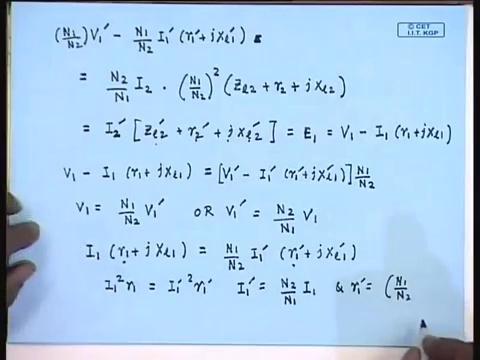 © CET
I.I.T. KGP
(N1/N2) V1′ − N1/N2 I1′ (r1′ + jxl1′)
= N2/N1 I2 · (N1/N2)² (Zl2 + r2 + jxl2)
= I2′ [Zl2′ + r2′ + jxl2′] = E1 = V1 − I1 (r1 + jxl1)
V1 − I1 (r1 + jxl1) = [V1′ − I1′ (r1′ + jxl1′)] N1/N2
V1 = N1/N2 V1′ OR V1′ = N2/N1 V1
I1 (r1 + jxl1) = N1/N2 I1′ (r1′ + jxl1′)
I1² r1 = I1′² r1′ I1′ = N2/N1 I1 & r1′ = (N1/N2